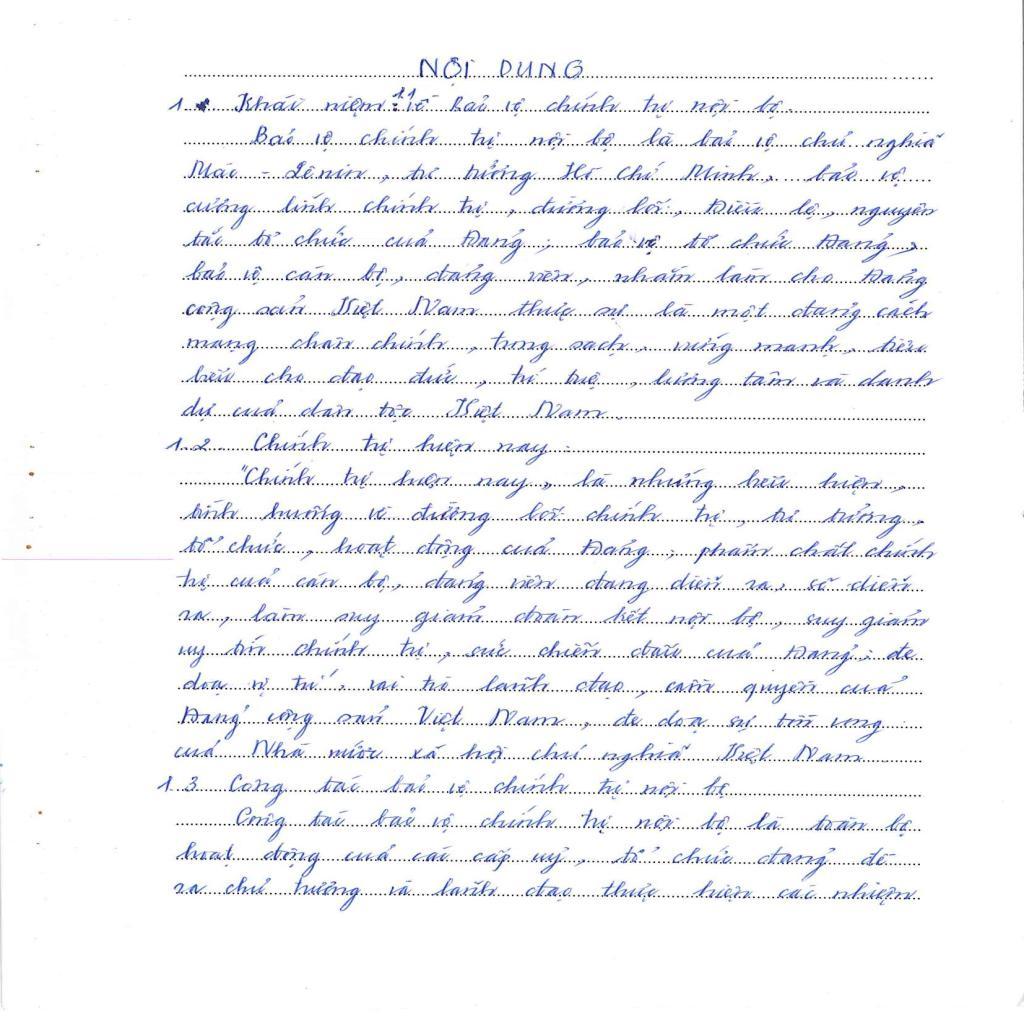 NỘI DUNG
1. Khái niệm: 1.1 về bảo vệ chính trị nội bộ.
Bảo vệ chính trị nội bộ là bảo vệ chủ nghĩa
Mác - Lênin, tư tưởng Hồ Chí Minh, bảo vệ
cương lĩnh chính trị, đường lối, Điều lệ, nguyên
tắc tổ chức của Đảng; bảo vệ tổ chức Đảng,
bảo vệ cán bộ, đảng viên, nhằm làm cho Đảng
cộng sản Việt Nam thực sự là một đảng cách
mạng chân chính, trong sạch, vững mạnh, tiêu
biểu cho đạo đức, trí tuệ, lương tâm và danh
dự của dân tộc Việt Nam.
1.2. Chính trị hiện nay:
"Chính trị hiện nay" là những biểu hiện,
tình huống về đường lối chính trị, tư tưởng,
tổ chức, hoạt động của Đảng; phẩm chất chính
trị của cán bộ, đảng viên đang diễn ra, sẽ diễn
ra, làm suy giảm đoàn kết nội bộ, suy giảm
uy tín chính trị, sức chiến đấu của Đảng; đe
dọa vị trí, vai trò lãnh đạo, cầm quyền của
Đảng cộng sản Việt Nam, đe dọa sự tồn vong
của Nhà nước xã hội chủ nghĩa Việt Nam.
1.3 Công tác bảo vệ chính trị nội bộ
Công tác bảo vệ chính trị nội bộ là toàn bộ
hoạt động của các cấp uỷ, tổ chức đảng đề
ra chủ trương và lãnh đạo thực hiện các nhiệm